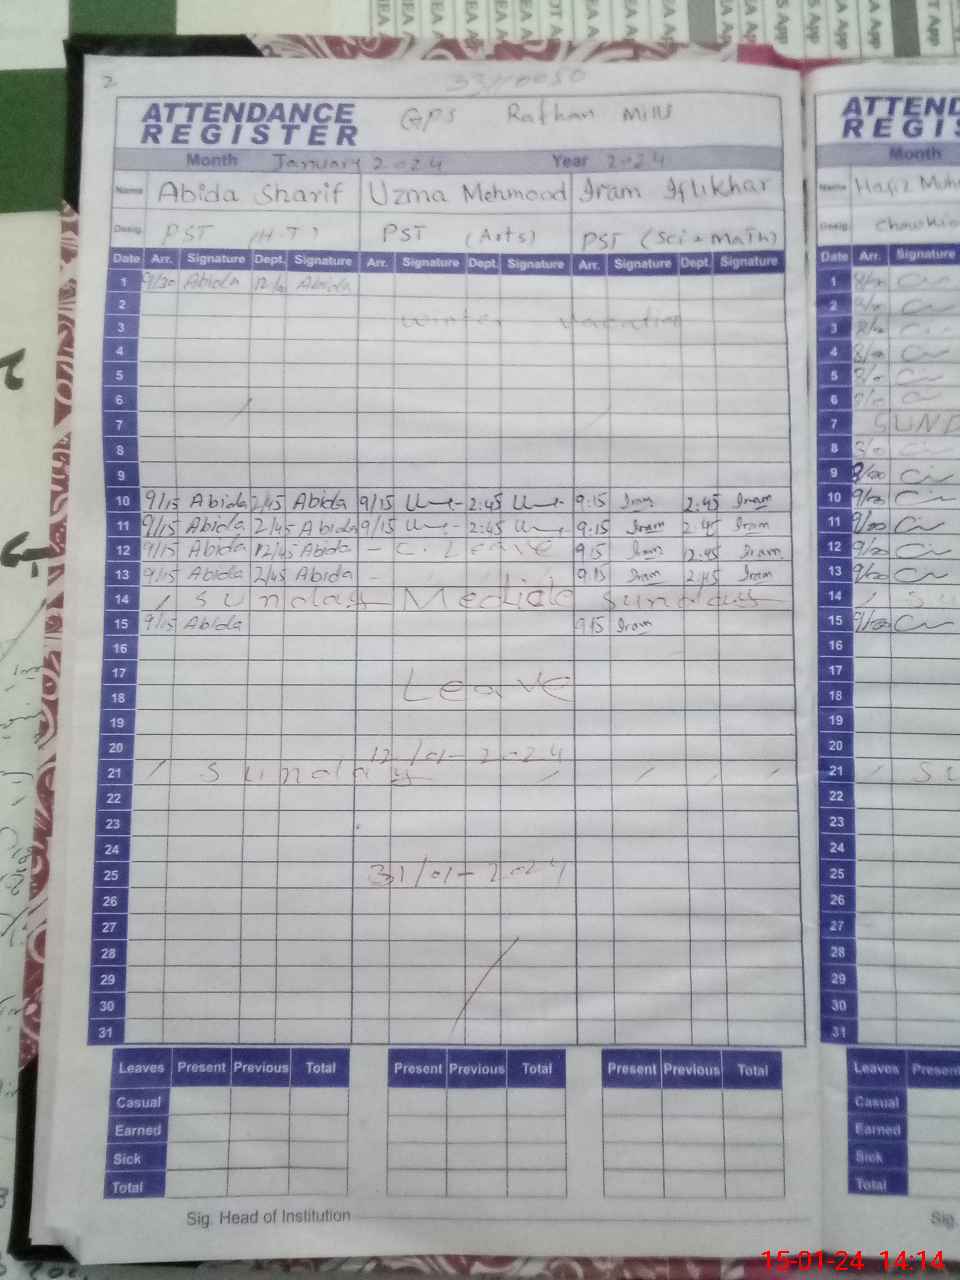 2
ATTENDANCE REGISTER
GPS Rafhan Mills
Month January 2024 Year 2024
Name Abida Sharif Uzma Mehmood Iram Iftikhar
Desig. PST (H.T) PST (Arts) PST (Sci + Math)
Date Arr. Signature Dept. Signature Arr. Signature Dept. Signature Arr. Signature Dept. Signature
1 9/30 Abida Abida
2
3 winter vacation
4
5
6
7
8
9
10 9/15 Abida 2/45 Abida 9/15 2:45 9:15 Iram 2:45 Iram
11 9/15 Abida 2/45 Abida 9/15 2:45 9:15 Iram 2:45 Iram
12 9/15 Abida 12/45 Abida - C. Leave 9:15 Iram 12:45 Iram
13 9/15 Abida 2/45 Abida - 9:15 Iram 2:45 Iram
14 Sunday Medical Sunday
15 9/15 Abida 9:15 Iram
16
17
18 Leave
19
20 12/01-2024
21 Sunday
22
23
24
25 31/01-2024
26
27
28
29
30
31
Leaves Present Previous Total Present Previous Total Present Previous Total
Casual
Earned
Sick
Total
Sig. Head of Institution
ATTEND
REGIS
Month
Name Hafiz
Desig.
Date Arr. Signature
1
2
3
4
5
6
7 SUND
8
9
10
11
12
13
14 SU
15
16
17
18
19
20
21 SU
22
23
24
25
26
27
28
29
30
31
Leaves Present
Casual
Earned
Sick
Total
Sig.
15-01-24 14:14